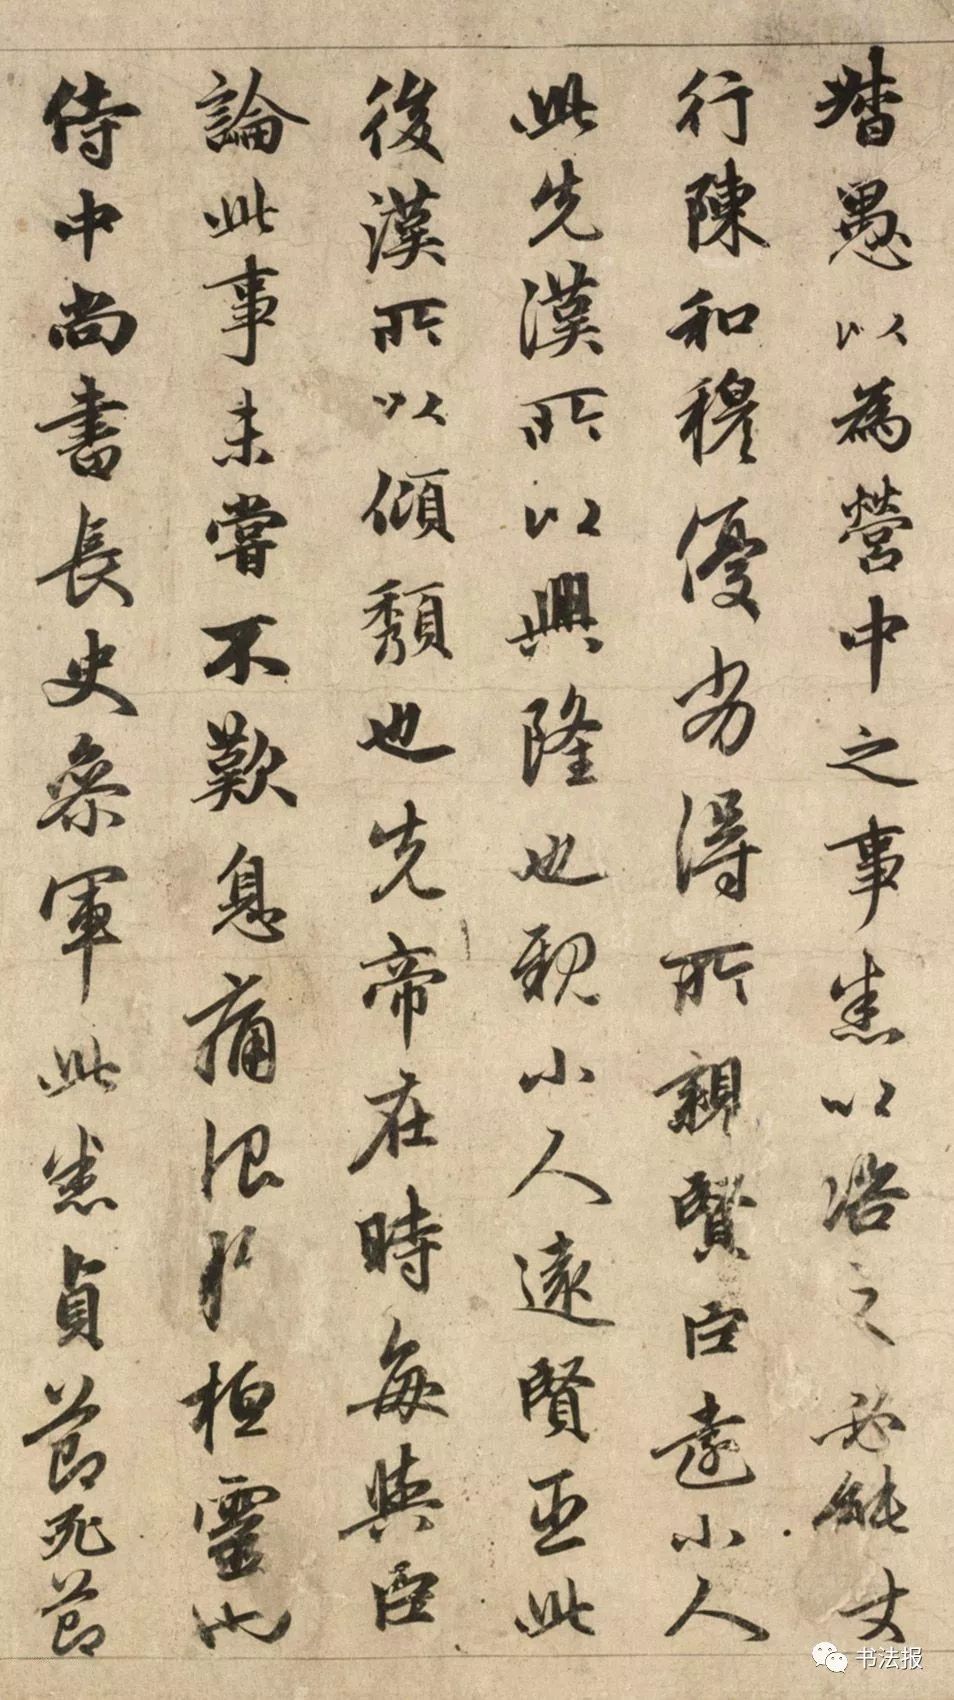 督愚以為營中之事悉以咨之必能使
行陳和穆優劣得所親賢臣遠小人
此先漢所以興隆也親小人遠賢臣此
後漢所以傾頹也先帝在時每與臣
論此事未嘗不歎息痛恨於桓靈也
侍中尚書長史參軍此悉貞節死節
书法报